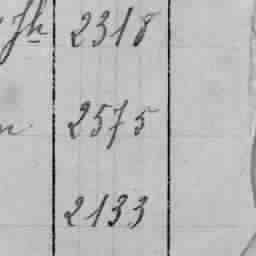 2318
2575
2133